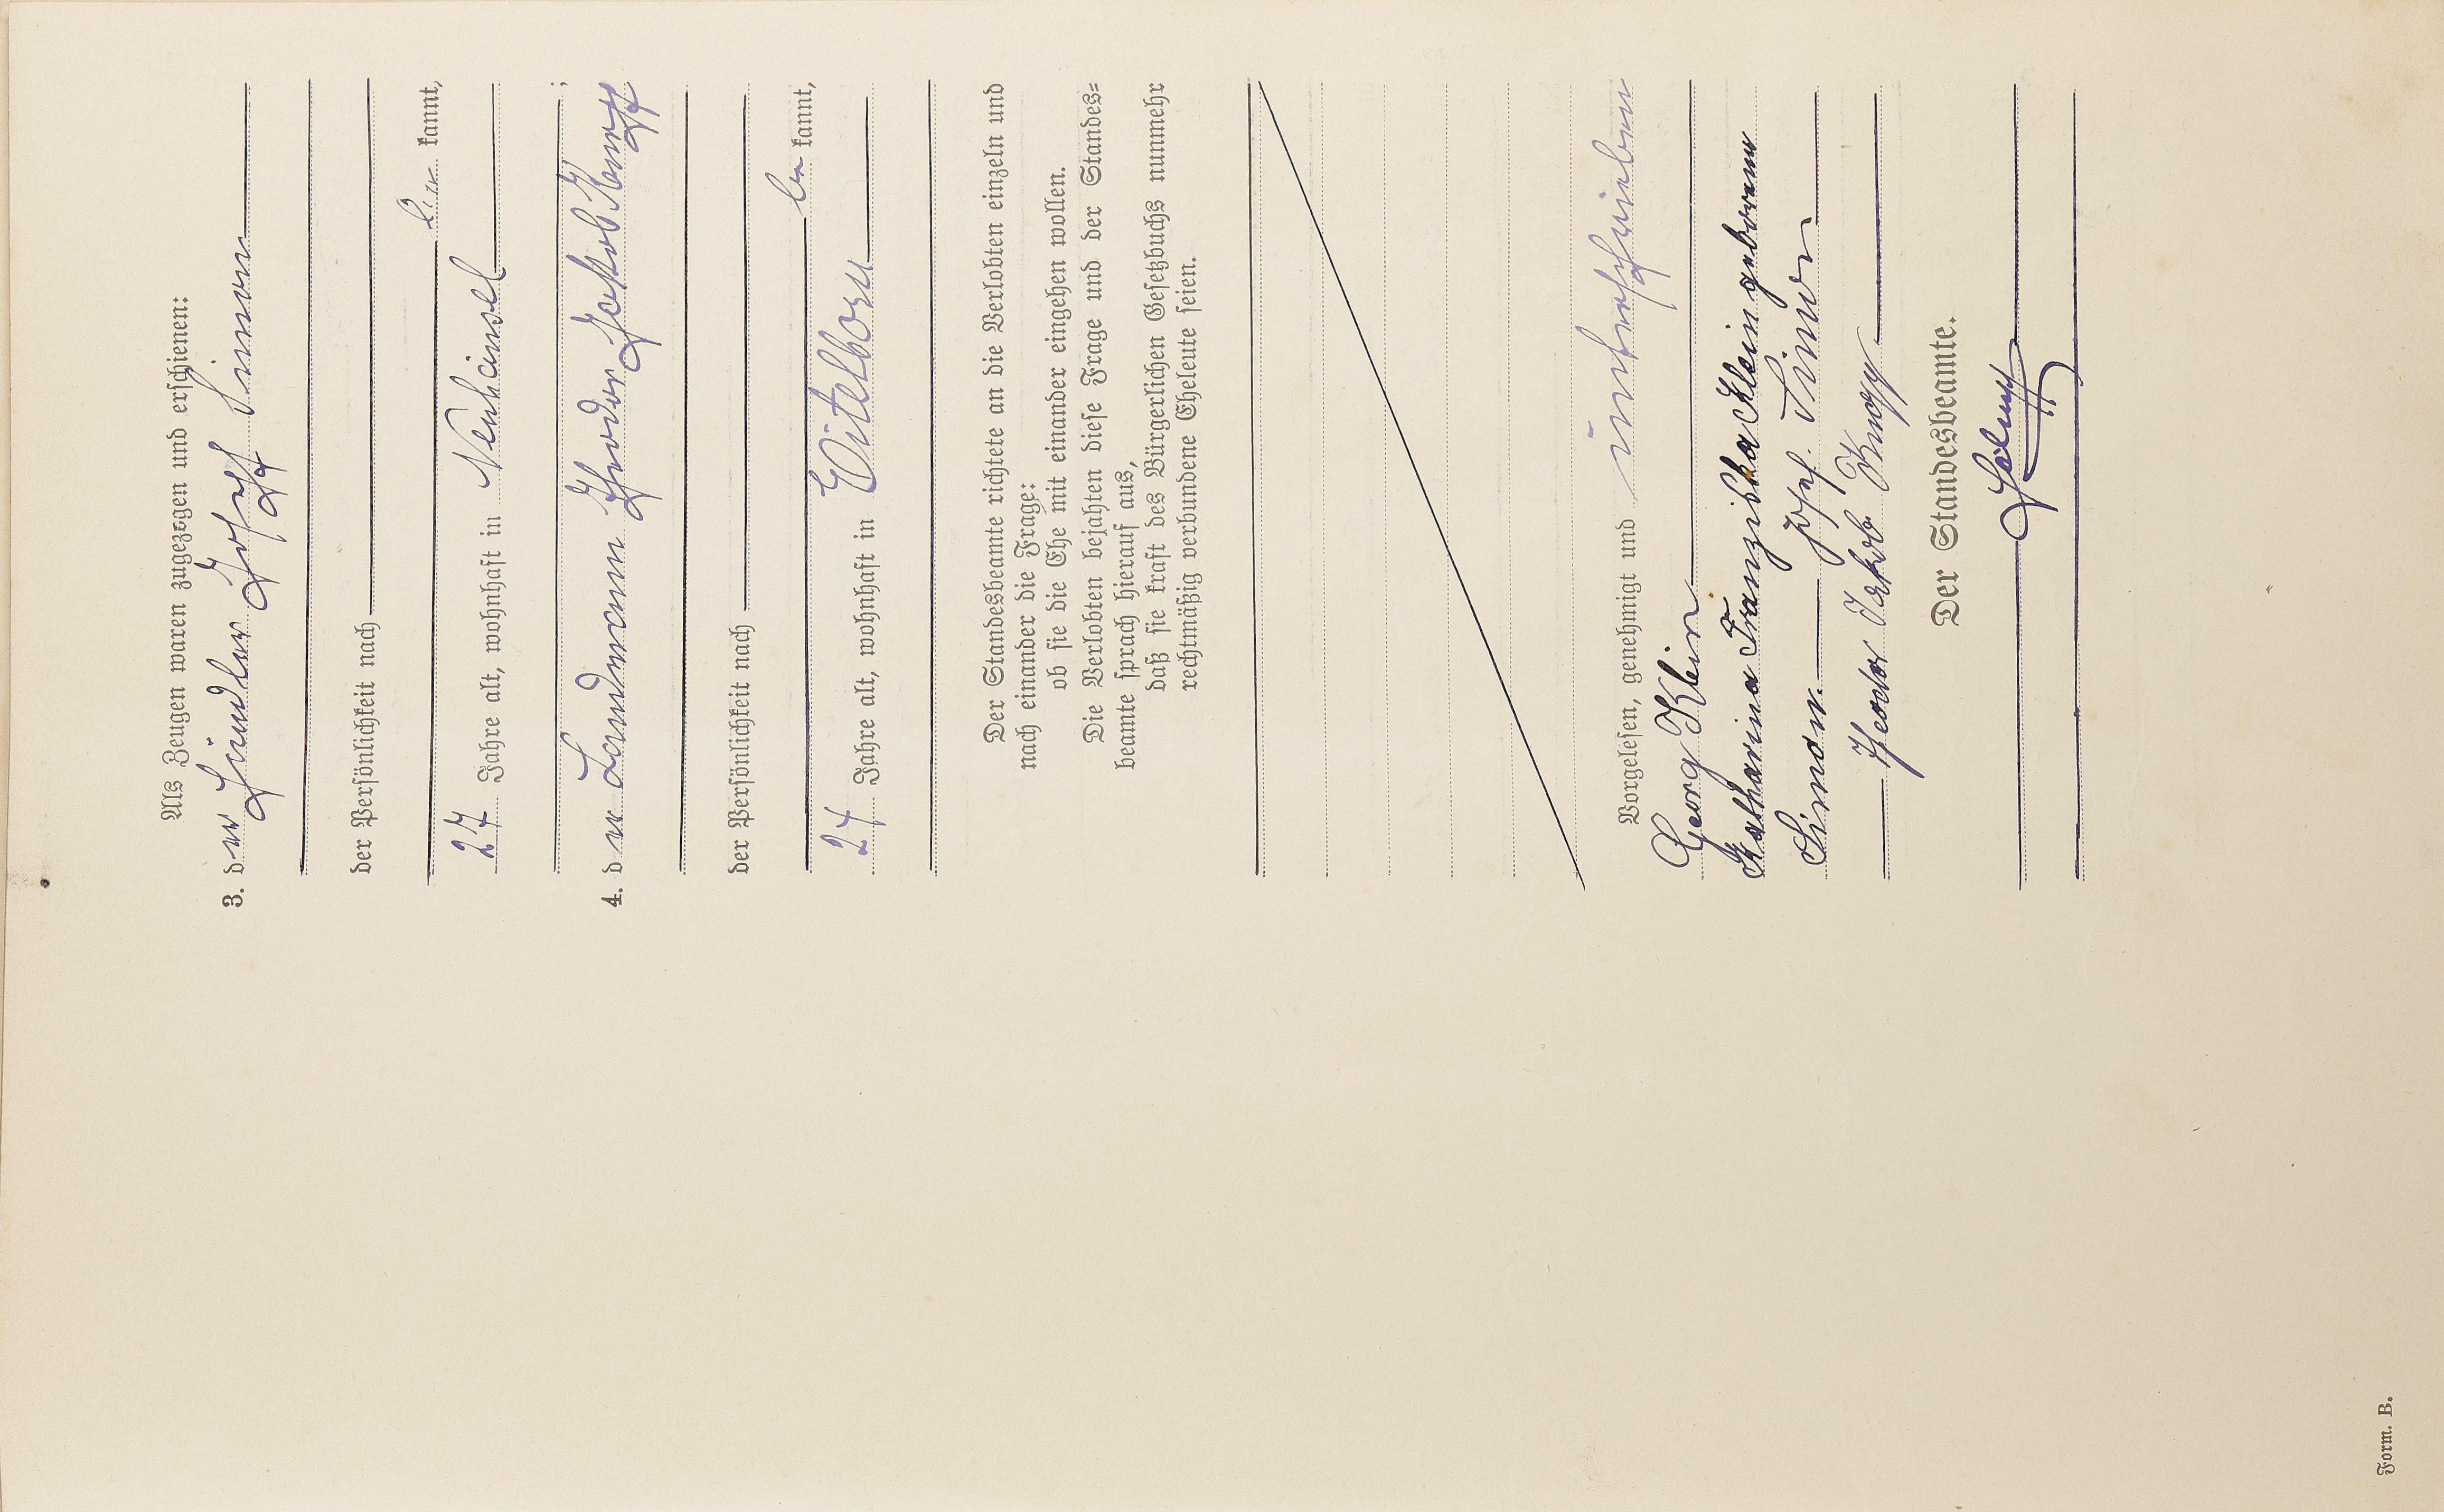 Als Zeugen waren zugezogen und erschienen:
3. der Händler Josef Simon
der Persönlichkeit nach
be kannt,
27 Jahre alt, wohnhaft in Neuhäusel
;
4. der Landmann Theodor Jakob Knopp
der Persönlichkeit nach
be kannt,
27 Jahre alt, wohnhaft in Eitelborn
Der Standesbeamte richtete an die Verlobten einzeln und
nach einander die Frage:
ob sie die Ehe mit einander eingehen wollen.
Die Verlobten bejahten diese Frage und der Standes-
beamte sprach hierauf aus,
daß sie kraft des Bürgerlichen Gesetzbuchs nunmehr
rechtmäßig verbundene Eheleute seien.
Vorgelesen, genehmigt und unterschrieben
Georg Klein
Katharina Franziska Klein geborene
Simon. Josef Simon
Theodor Jakob Knopp
Der Standesbeamte.
Form. B.